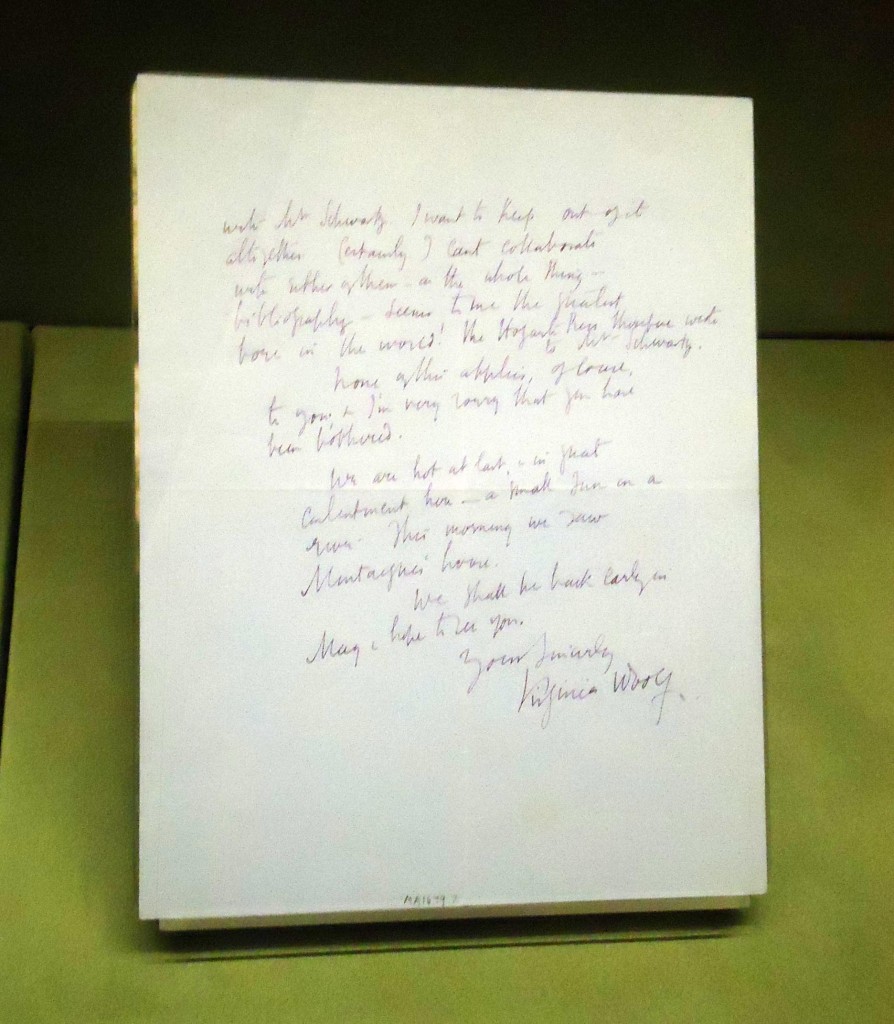 with Mr Schwartz. I want to keep out of it
altogether. Certainly I cant collaborate
with either of them - as the whole thing -
bibliography - seems to me the greatest
bore in the world! The Hogarth Press therefore wrote
to Mr Schwartz.
None of this applies, of course,
to you; & I'm very sorry that you have
been bothered.
We are hot at last, & in great
contentment here - a small Inn on a
river. This morning we saw
Montaignes house.
We shall be back early in
May & hope to see you.
Yours Sincerely
Virginia Woolf.
MA1679